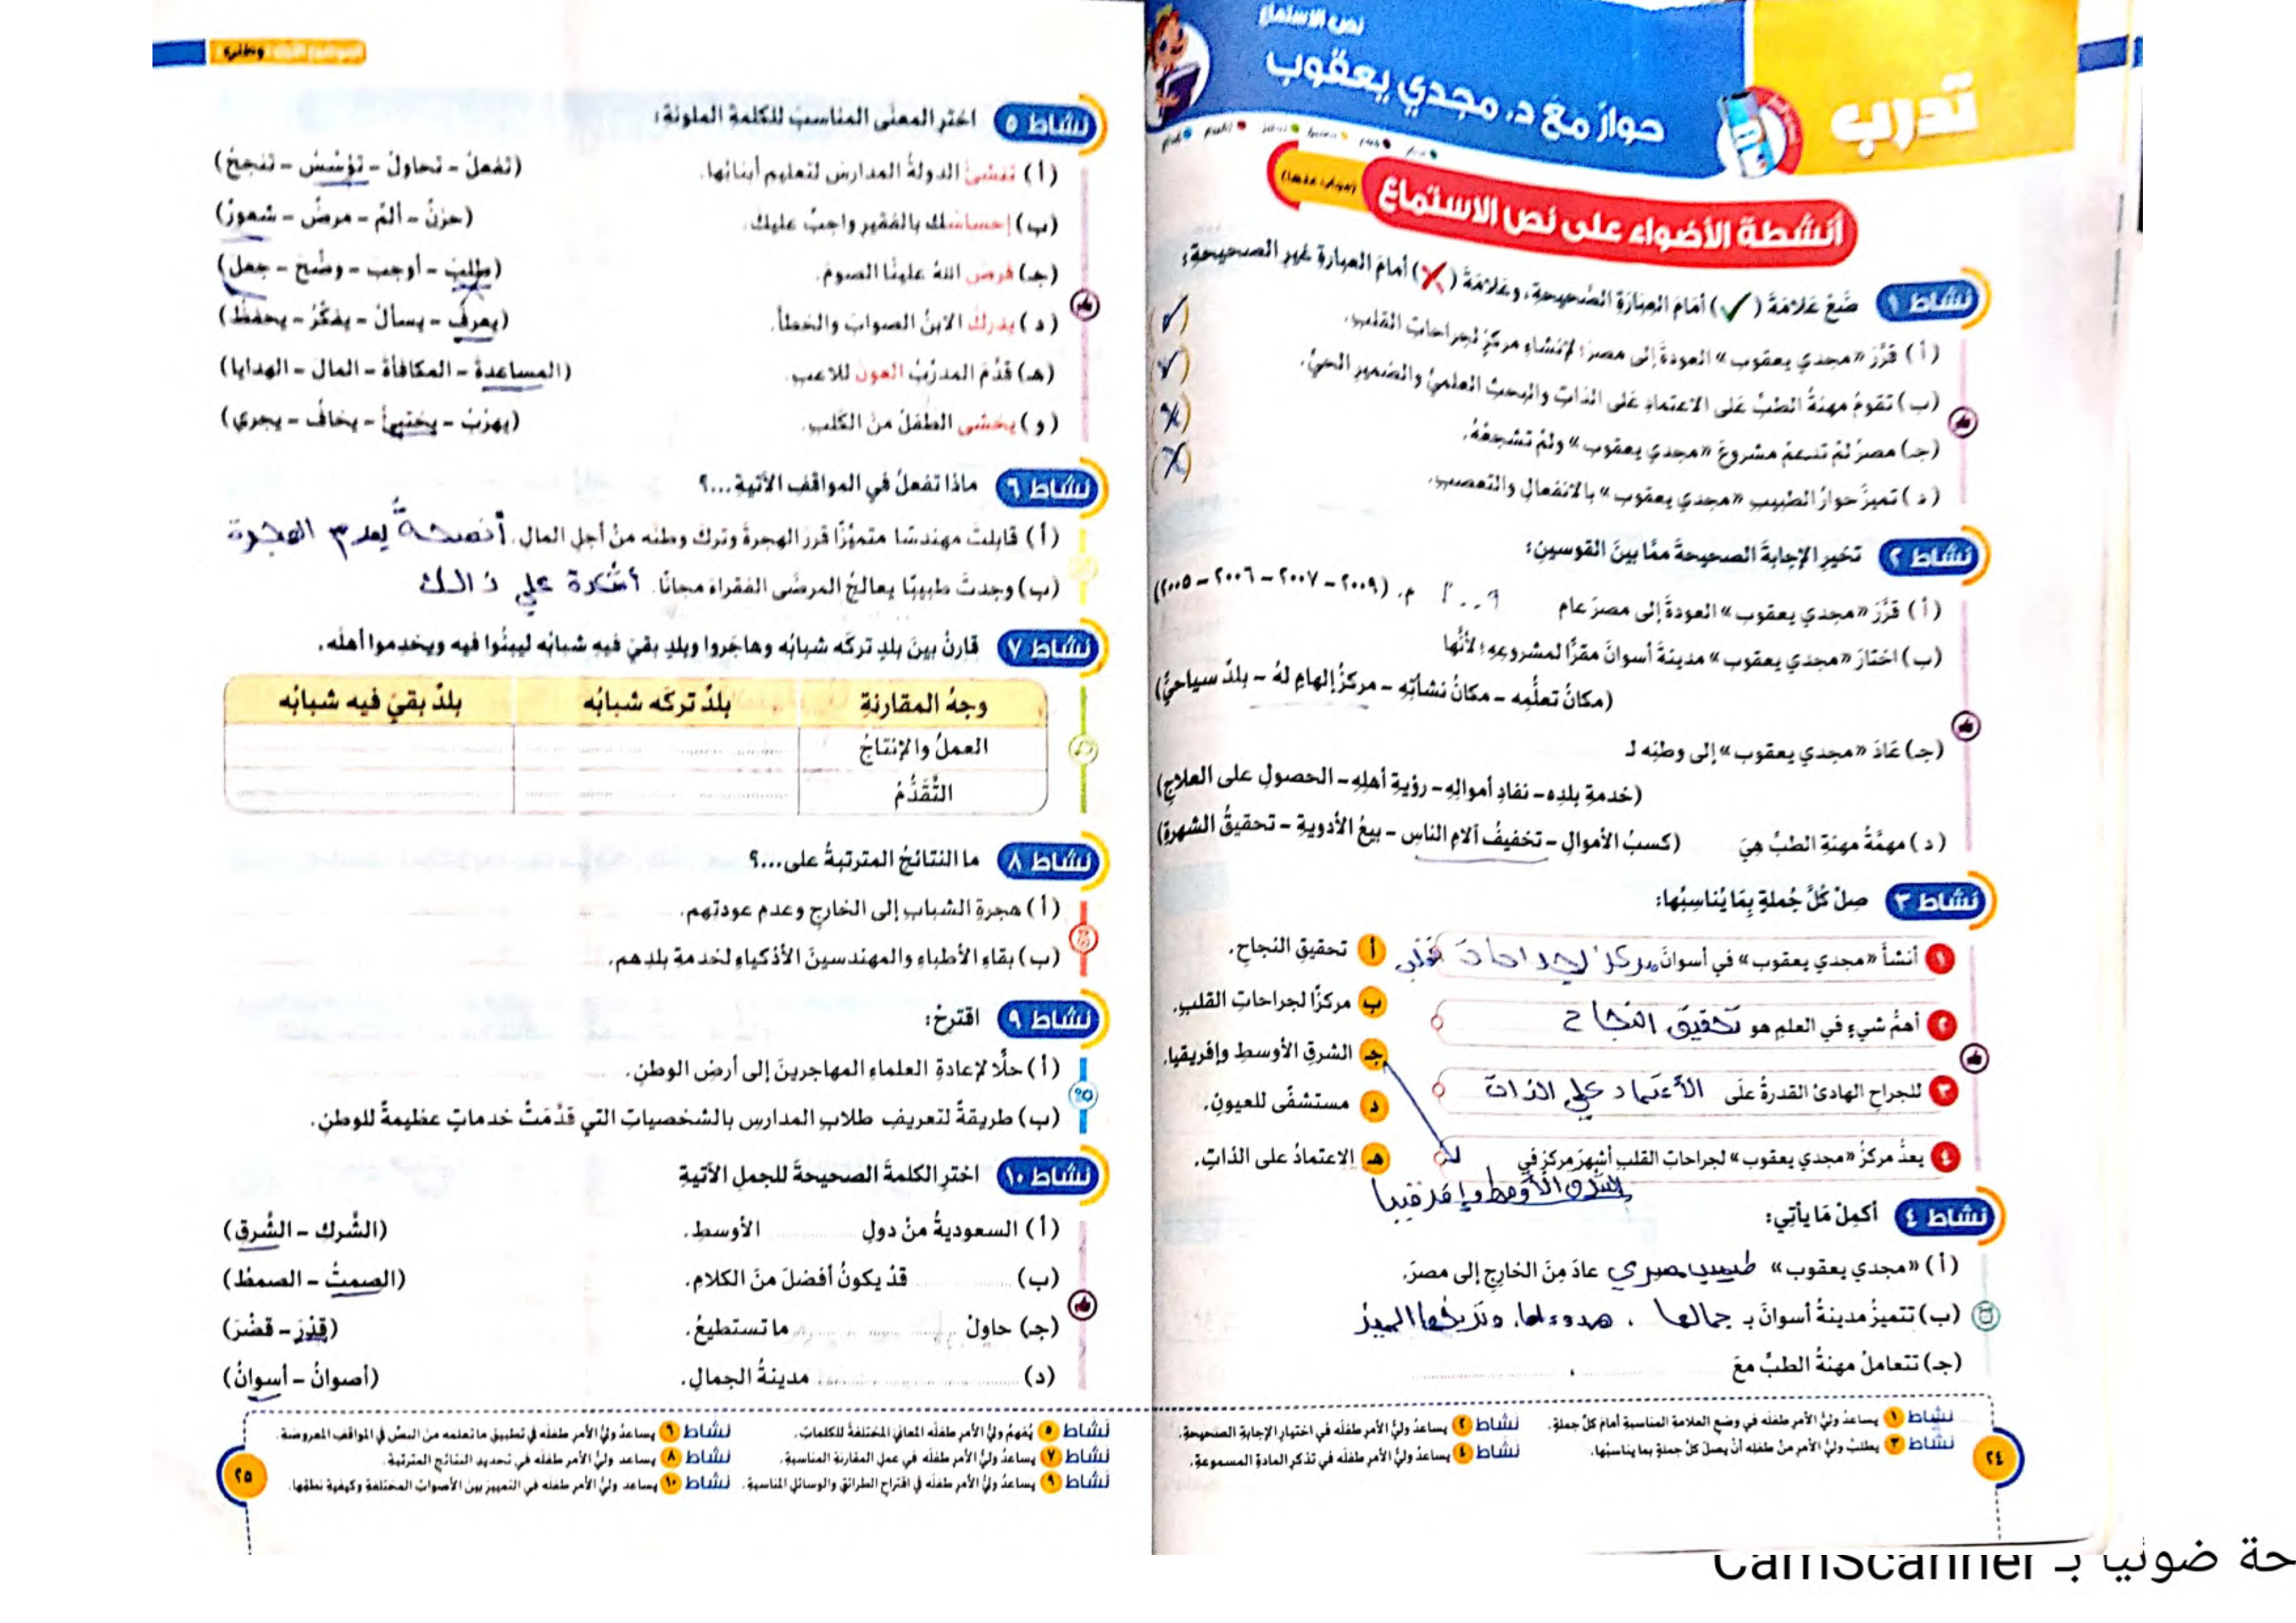 تدرب
نص الاستماع
حوارٌ معَ د. مجدي يعقوب
أنشطة الأضواء على نص الاستماع
(مجاب عنها)
نشاط ١ ضَعْ عَلَامَةَ (✓) أَمَامَ العِبَارَةِ الصَّحِيحَةِ، وعَلَامَةَ (✗) أَمَامَ العبارةِ غيرِ الصحيحةِ:
(أ) قرَّرَ «مجدي يعقوب» العودةَ إلى مصرَ؛ لإنشاءِ مركزٍ لجراحاتِ القلبِ. (✓)
(ب) تقومُ مهنةُ الطبِّ على الاعتمادِ على الذاتِ والبحثِ العلميِّ والضميرِ الحيِّ. (✓)
(جـ) مصرُ لمْ تدعمْ مشروعَ «مجدي يعقوب» ولمْ تشجعْهُ. (✗)
(د) تميزَ حوارُ الطبيبِ «مجدي يعقوب» بالانفعالِ والتعصبِ. (✗)
نشاط ٢ تخيرِ الإجابةَ الصحيحةَ ممَّا بينَ القوسينِ:
(أ) قرَّرَ «مجدي يعقوب» العودةَ إلى مصرَ عام ٢٠٠٩ م. (٢٠٠٩ – ٢٠٠٧ – ٢٠٠٦ – ٢٠٠٥)
(ب) اختارَ «مجدي يعقوب» مدينةَ أسوانَ مقرًّا لمشروعِهِ؛ لأنَّها
(مكانُ تعلُّمِه – مكانُ نشأتِهِ – مركزُ إلهامٍ لهُ – بلدٌ سياحيٌّ)
(جـ) عَادَ «مجدي يعقوب» إلى وطنِه لـ
(خدمةِ بلدِه – نفادِ أموالِهِ – رؤيةِ أهلِهِ – الحصولِ على العلاجِ)
(د) مهمَّةُ مهنةِ الطبِّ هِيَ (كسبُ الأموالِ – تخفيفُ آلامِ الناسِ – بيعُ الأدويةِ – تحقيقُ الشهرةِ)
نشاط ٣ صِلْ كُلَّ جُملةٍ بِمَا يُنَاسِبُها:
١ أنشأ «مجدي يعقوب» في أسوانَ مركز لجراحات قلب أ تحقيقِ النجاحِ.
ب مركزًا لجراحاتِ القلبِ.
٢ أهمُّ شيءٍ في العلمِ هو تحقيق النجاح
جـ الشرقِ الأوسطِ وإفريقيا.
٣ للجراحِ الهادئ القدرةُ على الأعتماد علي الذات
د مستشفًى للعيونِ.
٤ يعدُّ مركزُ «مجدي يعقوب» لجراحاتِ القلبِ أشهرَ مركزٍ في هـ الاعتمادُ على الذاتِ.
الشرق الأوسط وإفريقيا
نشاط ٤ أكمِلْ مَا يأتِي:
(أ) «مجدي يعقوب» طبيب مصري عادَ مِنَ الخارجِ إلى مصرَ.
(ب) تتميزُ مدينةُ أسوانَ بـ جمالها ، هدوءها، وتاريخها المميز
(جـ) تتعاملُ مهنةُ الطبِّ معَ ،
نشاط ١ يساعدُ وليُّ الأمرِ طفلَه في وضعِ العلامةِ المناسبةِ أمامَ كلِّ جملةٍ. نشاط ٢ يساعدُ وليُّ الأمرِ طفلَه في اختيارِ الإجابةِ الصحيحةِ.
نشاط ٣ يطلبُ وليُّ الأمرِ منْ طفلِه أنْ يصلَ كلَّ جملةٍ بما يناسبُها. نشاط ٤ يساعدُ وليُّ الأمرِ طفلَه في تذكرِ المادةِ المسموعةِ.
٢٤
وطني
نشاط ٥ اخترِ المعنَى المناسبَ للكلمةِ الملونةِ:
(أ) تنشئُ الدولةُ المدارسَ لتعليمِ أبنائِها. (تفعلُ – تحاولُ – تؤسِّسُ – تنجحُ)
(ب) إحساسُك بالفقيرِ واجبٌ عليكَ. (حزنٌ – ألمٌ – مرضٌ – شعورٌ)
(جـ) فرضَ اللهُ علينَا الصومَ. (طلبَ – أوجبَ – وضَّحَ – جعلَ)
(د) يدركُ الابنُ الصوابَ والخطأَ. (يعرفُ – يسألُ – يفكِّرُ – يحفظُ)
(هـ) قدَّمَ المدرِّبُ العونَ للاعبِ. (المساعدةَ – المكافأةَ – المالَ – الهدايا)
(و) يخشى الطفلُ منَ الكلبِ. (يهرُبُ – يختبئُ – يخافُ – يجري)
نشاط ٦ ماذا تفعلُ في المواقفِ الآتيةِ...؟
(أ) قابلتَ مهندسًا متميِّزًا قررَ الهجرةَ وتركَ وطنِه منْ أجلِ المالِ. أنصحة بعدم الهجرة
(ب) وجدتَ طبيبًا يعالجُ المرضَى الفقراءَ مجانًا. أشكرة علي ذالك
نشاط ٧ قارنْ بينَ بلدٍ تركَه شبابُه وهاجَروا وبلدٍ بقيَ فيه شبابُه ليبنُوا فيه ويخدِموا أهلَه.
وجهُ المقارنةِ بلدٌ تركَه شبابُه بلدٌ بقيَ فيه شبابُه
العملُ والإنتاجُ
التَّقَدُّمُ
نشاط ٨ ما النتائجُ المترتبةُ على...؟
(أ) هجرةِ الشبابِ إلى الخارجِ وعدمِ عودتِهم.
(ب) بقاءِ الأطباءِ والمهندسينَ الأذكياءِ لخدمةِ بلدِهم.
نشاط ٩ اقترحْ:
(أ) حلًّا لإعادةِ العلماءِ المهاجرينَ إلى أرضِ الوطنِ.
(ب) طريقةً لتعريفِ طلابِ المدارسِ بالشخصياتِ التي قدَّمَتْ خدماتٍ عظيمةً للوطنِ.
نشاط ١٠ اخترِ الكلمةَ الصحيحةَ للجملِ الآتيةِ
(أ) السعوديةُ منْ دولِ الأوسطِ. (الشَّرك – الشَّرق)
(ب) قدْ يكونُ أفضلَ منَ الكلامِ. (الصمتُ – الصمطُ)
(جـ) حاولْ ما تستطيعُ. (قدْرَ – قضْرَ)
(د) مدينةُ الجمالِ. (أصوانُ – أسوانُ)
نشاط ٥ يُفهمُ وليُّ الأمرِ طفلَه المعانيَ المختلفةَ للكلماتِ. نشاط ٦ يساعدُ وليُّ الأمرِ طفلَه في تطبيقِ ما تعلمه من النصِّ في المواقفِ المعروضةِ.
نشاط ٧ يساعدُ وليُّ الأمرِ طفلَه في عملِ المقارنةِ المناسبةِ. نشاط ٨ يساعد وليُّ الأمرِ طفلَه في تحديدِ النتائجِ المترتبةِ.
نشاط ٩ يساعدُ وليُّ الأمرِ طفلَه في اقتراحِ الطرائقِ والوسائلِ المناسبةِ. نشاط ١٠ يساعد وليُّ الأمرِ طفلَه في التمييزِ بين الأصواتِ المختلفةِ وكيفيةِ نطقِها.
٢٥
حة ضوئيا بـ CamScanner